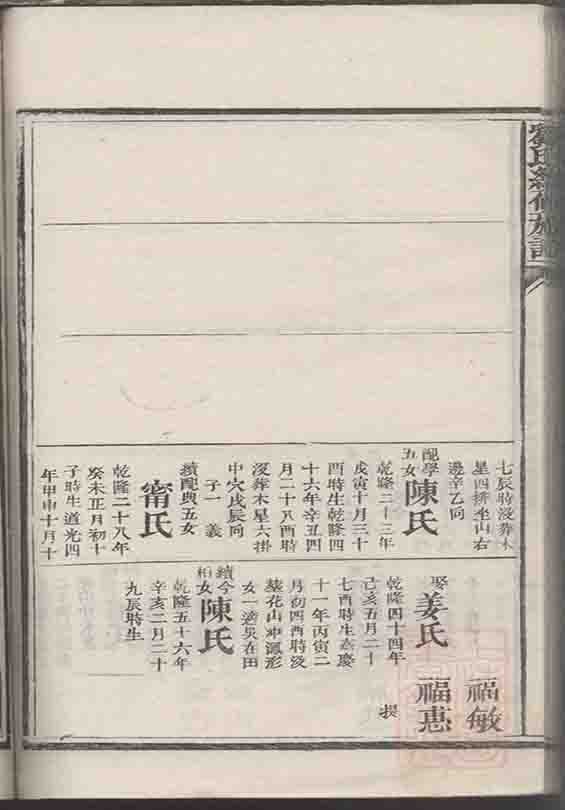 氏續修族記
七辰時沒葬木
星四排坐山右
邊辛乙向
配學
五女
陳氏
乾隆二十三年
戊寅十月三十
酉時生乾隆四
十六年辛丑四
月二十八酉時
沒葬木星六掛
中穴戌辰向
子一 義
續配典五女
甯氏
乾隆二十八年
癸未正月初十
子時生道光四
年甲申十月十
福敏
福惠
撰
娶姜氏
乾隆四十四年
己亥五月二十
七酉時生嘉慶
十一年丙寅二
月初四酉時沒
墓花山冲鳳形
女一適吳在田
續今
相女
陳氏
乾隆五十六年
辛亥二月二十
九辰時生